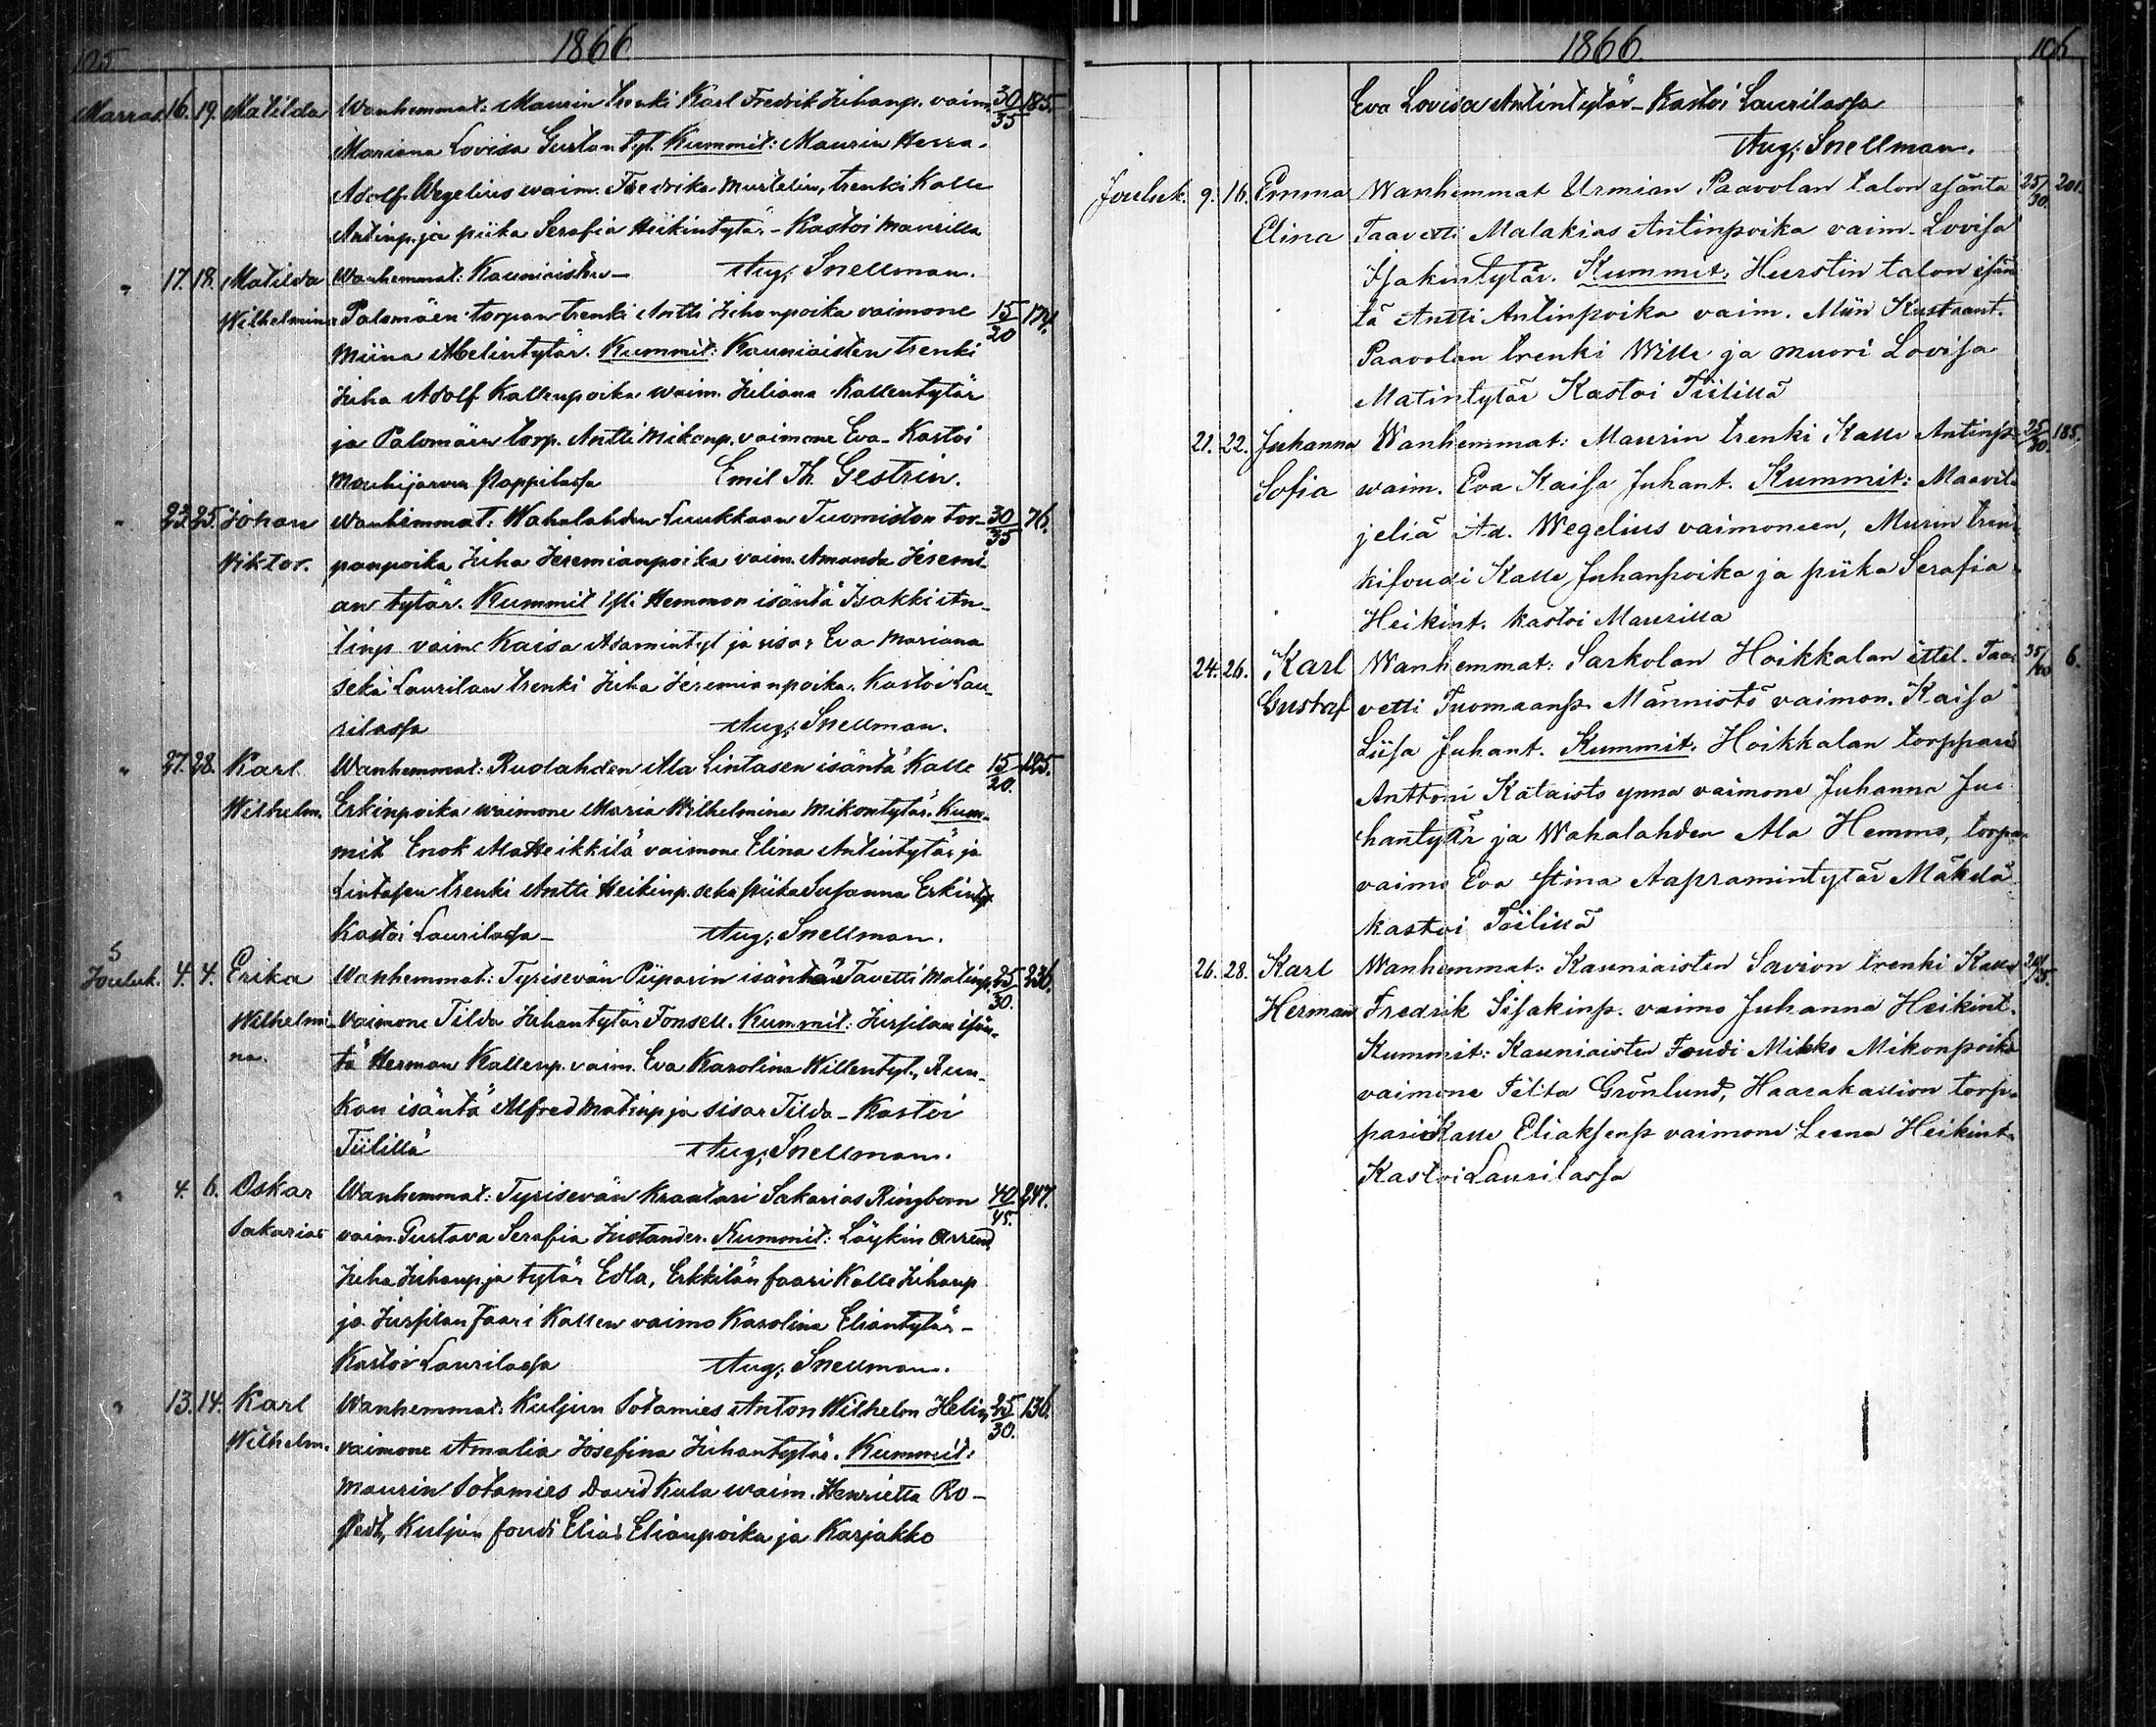 105
1866.
Marras. 16. 19. Matilda Wanhemmat: Maurin trenki Karl Fredrik Juhanp. vaim. 30/35 185.
Mariana Lovisa Gustantyt. Kummit: Maurin Herra
Adolf Wegelius waim. Fredrika Mustelin, trenki Kalle
Antinp. ja piika Serafia Heikintytär - Kastoi Maurilla
Aug. Snellman.
" 17. 18. Matilda Wanhemmat: Kauniaisten
Wilhelmina Palomäen torpan trenki Antti Juhanpoika vaimone 15/20 174.
Miina Abelintytär. Kummit: Kauniaisten trenki
Juha Adolf Kallenpoika waim. Juliana Kallentytär
ja Palomäen torp. Antti Mikonp. vaimone Eva - Kastoi
Mouhijärven Pappilassa Emil Th. Gestrin.
" 23. 25. Johan Wanhemmat: Wahalahden Luukkaan Tuomiston tor- 30/35 76.
Viktor. panpoika Juha Jeremianpoika vaim. Amanda Jeremi-
an tytär. Kummit Hemmon isäntä Isakki An-
tinp vaim. Kaisa Adamintyt ja sisar Eva Mariana
sekä Laurilan trenki Juha Jeremianpoika. Kastoi Lau-
rilassa Aug. Snellman.
" 27. 28. Karl Wanhemmat: Ruolahden Ala Lintasen isäntä Kalle 15/20. 125.
Wilhelm. Erkinpoika waimone Maria Wilhelmina Mikontytär. Kum-
mit Enok AlaHeikkilä vaimone Elina Antintytär ja
Lintasen trenki Antti Heikinp. sekä piika Susanna Erkintyt
Kastoi Laurilassa - Aug. Snellman.
5
Jouluk. 4. 4. Erika Wanhemmat: Tyrisevän Piiparin isäntä Tavetti Matinp. 25/30. 236.
Wilhelmi- vaimone Tilda Juhantytär Fonsell. Kummit: Jussilan isän-
na. tä Herman Kallenp. vaim. Eva Karolina Willentyt., Kun-
kan isäntä Alfred Matinp ja sisar Tilda - Kastoi
Tiilillä Aug. Snellman.
" 4. 6. Oskar Wanhemmat: Tyrisevän Kraatari Sakarias Ringbom 40/45. 247.
Sakarias vaim. Gustava Serafia Justander. Kummit: Löykin Arrend
Juha Juhanp ja tytär Edla, Erkkilän faari Kalle Juhanp
ja Jussilan Faari Kallen vaimo Karolina Eliantytär -
Kastoi Laurilassa Aug. Snellman.
" 13. 14. Karl Wanhemmat: Kuljun Sotamies Anton Wilhelm Helin, 25/30. 136.
Wilhelm. vaimone Amalia Josefina Juhantytär. Kummit:
Maurin Sotamies David Kula waim. Henrietta Ro-
Kuljun foudi Elias Elianpoika ja Karjakko
1866. 106.
Eva Lovisa Antintytär - Kastoi Laurilassa
Aug. Snellman.
Jouluk. 9. 16. Emma Wanhemmat Urmian Paavolan talon isäntä 25/30. 201.
Elina Taavetti Malakias Antinpoika vaim. Lovisa
Isakintytär. Kummit: Hurstin talon isän
tä Antti Antinpoika vaim. Miin Kustaant.
Paavolan trenki Wille ja muori Lovisa
Matintytär Kastoi Tiilillä
21. 22. Juhanna Wanhemmat: Maurin trenki Kalle Antinp. 25/30. 185.
Sofia waim. Eva Kaisa Juhant. Kummit: Maavil-
jeliä Ad. Wegelius vaimoneen, Murin tren
kifoudi Kalle Juhanpoika ja piika Serafia
Heikint. kastoi Maurilla
24. 26. Karl Wanhemmat: Sarkolan Hoikkalan ittel. Taa 35/40 6.
Gustaf vetti Tuomaanp. Männistö vaimon. Kaisa
Liisa Juhant. Kummit. Hoikkalan torppari
Anttoni Kataisto ynna vaimone Juhanna Ju-
hantytär ja Wahalahden Ala Hemmo, torpan
vaimo Eva Stina Aapramintytär Mäkelä
kastoi Tiilillä
26. 28. Karl Wanhemmat: Kauniaisten Savion trenki Kalle 20/25.
Herman Fredrik Iisakinp. vaimo Juhanna Heikint.
Kummit: Kauniaisten Foudi Mikko Mikonpoika
vaimone Tilta Grönlund, Haarakallion torp-
pari Kalle Eliaksenp vaimone Leena Heikint.
Kastoi Laurilassa